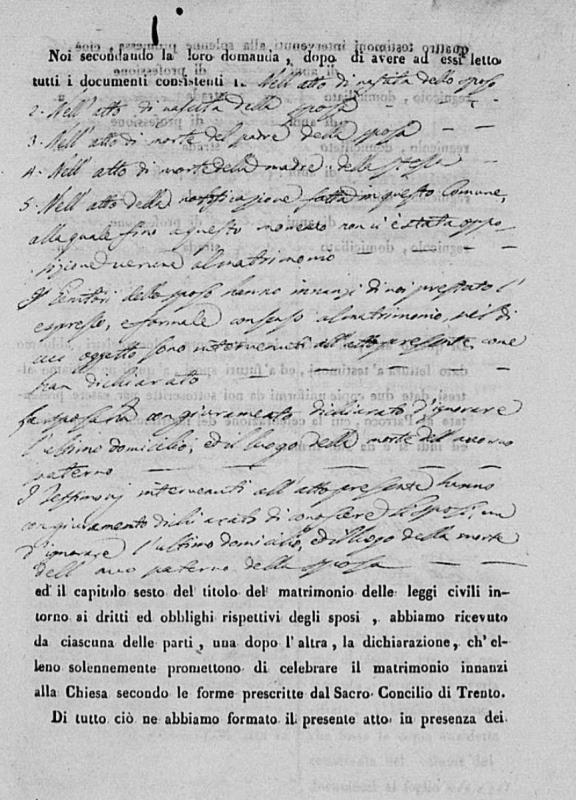 Noi secondando la loro domanda, dopo di avere ad essi letto
tutti i documenti consistenti 1. Nell'atto di nascita dello sposo
2. Nell'atto di nascita della sposa
3. Nell'atto di morte del padre della sposa
4. Nell'atto di morte della madre della stessa
5. Nell'atto della notificazione fatta in questo Comune,
alla quale fino a questo momento non vi è stata oppo
sizione veruna al matrimonio
I Genitori dello sposo hanno innanzi di noi prestato l'
espresso, e formale consenso al matrimonio, nel di
cui oggetto sono intervenuti all'atto presente, come
han dichiarato
La sposa ha con giuramento dichiarato d'ignorare
l'ultimo domicilio, ed il luogo della morte dell'avo suo
paterno
I testimonj intervenuti all'atto presente hanno
con giuramento dichiarato di conoscere gli sposi, ma
d'ignorare l'ultimo domicilio, ed il luogo della morte
dell'avo paterno della sposa
ed il capitolo sesto del titolo del matrimonio delle leggi civili in-
torno ai dritti ed obblighi rispettivi degli sposi, abbiamo ricevuto
da ciascuna delle parti, una dopo l'altra, la dichiarazione, ch'el-
leno solennemente promettono di celebrare il matrimonio innanzi
alla Chiesa secondo le forme prescritte dal Sacro Concilio di Trento.
Di tutto ciò ne abbiamo formato il presente atto in presenza dei